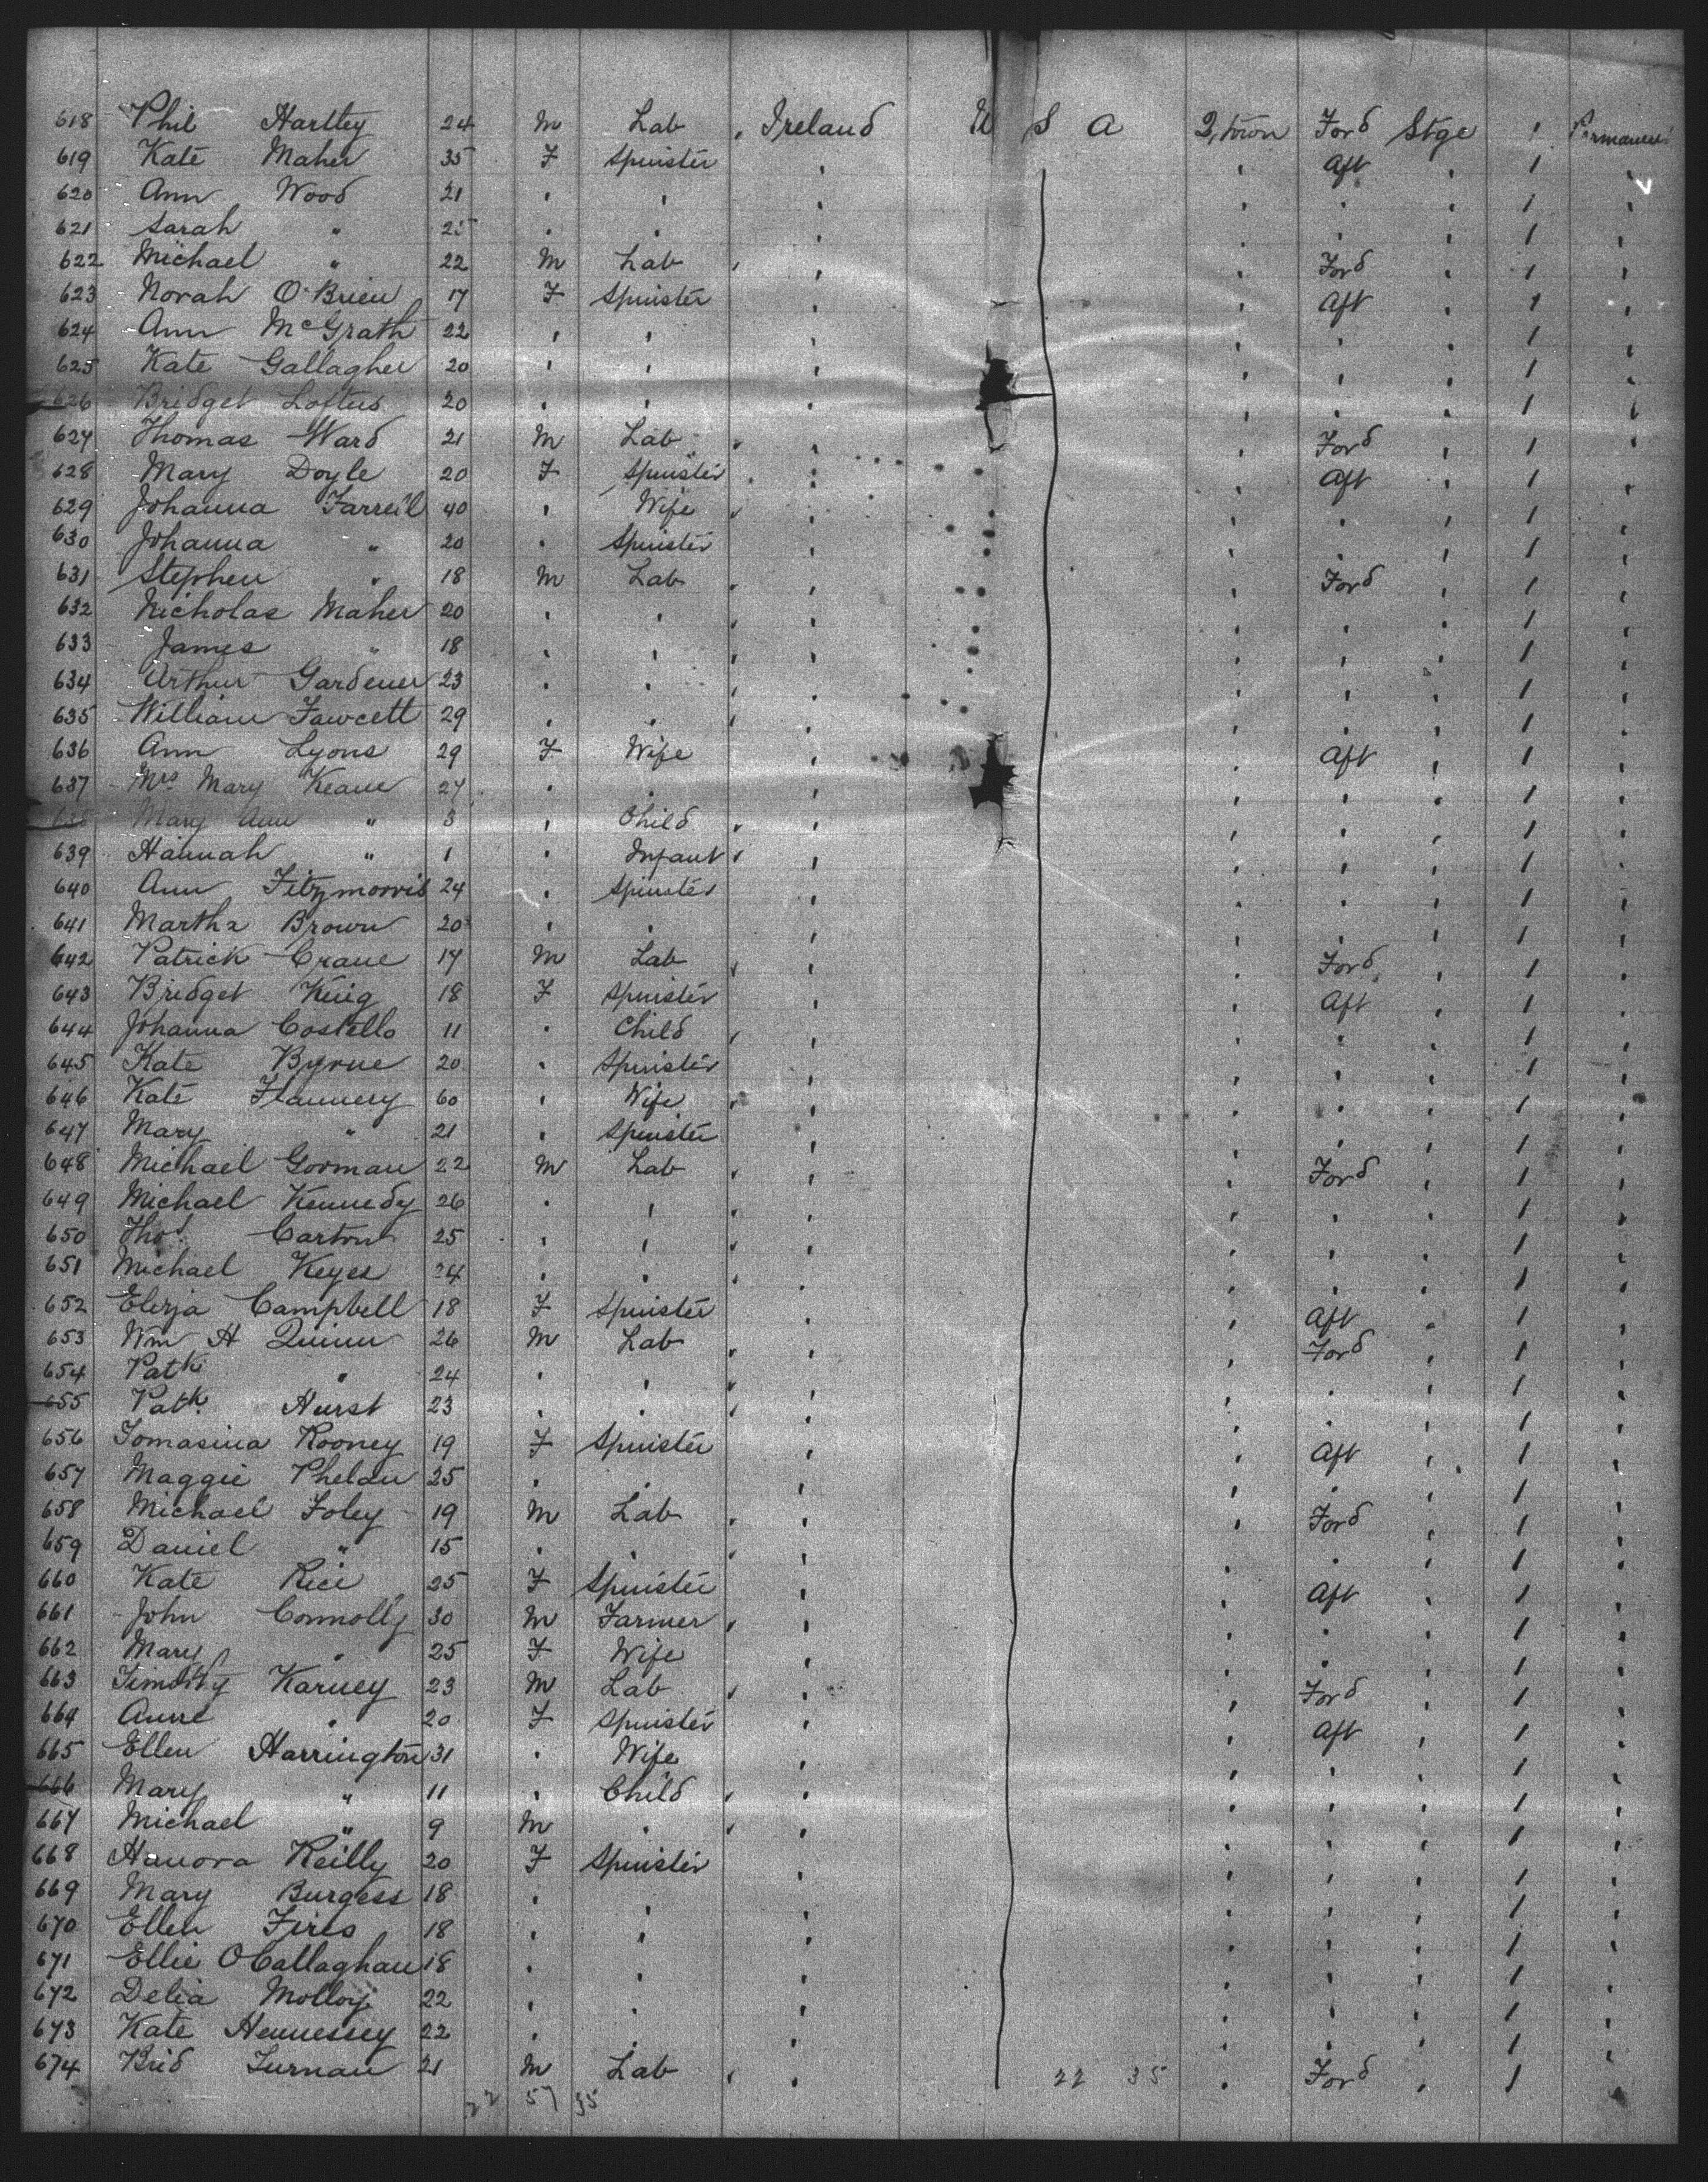 618 Phil Hartley 24 M Lab , Ireland U S A Q,town Ford Stge 1 Permanent
619 Kate Maher 35 F Spinster , , Aft , 1 ,
620 Ann Wood 21 , , , , , , 1 ,
621 Sarah " 25 , , , , , , 1 ,
622 Michael " 22 M Lab , , , Ford , 1 ,
623 Norah O'Brien 17 F Spinster , , Aft , 1 ,
624 Ann McGrath 22 , , , , , , 1 ,
625 Kate Gallagher 20 , , , , , , 1 ,
626 Bridget Loftus 20 , , , , , , 1 ,
627 Thomas Ward 21 M Lab , , , Ford , 1 ,
628 Mary Doyle 20 F Spinster , , , Aft , 1 ,
629 Johanna Farrell 40 , Wife , , , , , 1 ,
630 Johanna " 20 , Spinster , , , , 1 ,
631 Stephen " 18 M Lab , , , Ford , 1 ,
632 Nicholas Maher 20 , , , , , , , 1 ,
633 James " 18 , , , , , , , 1 ,
634 Arthur Gardener 23 , , , , , , , 1 ,
635 William Fawcett 29 , , , , , , , 1 ,
636 Ann Lyons 29 F Wife , , Aft , 1 ,
637 Mrs Mary Keane 27 , , , , , , 1 ,
638 Mary Ann " 3 , Child , , , , , 1 ,
639 Hannah " 1 , Infant , , , , , 1 ,
640 Ann Fitzmorris 24 , Spinster , , , , 1 ,
641 Martha Brown 20 , , , , , , 1 ,
642 Patrick Crane 17 M Lab , , , Ford , 1 ,
643 Bridget King 18 F Spinster , , Aft , 1 ,
644 Johanna Costello 11 , Child , , , , , 1 ,
645 Kate Byrne 20 , Spinster , , , , 1 ,
646 Kate Flannery 60 , Wife , , , , , 1 ,
647 Mary " 21 , Spinster , , , , 1 ,
648 Michael Gorman 22 M Lab , , , Ford , 1 ,
649 Michael Kennedy 26 , , , , , , , 1 ,
650 Thos Carton 25 , , , , , , , 1 ,
651 Michael Keyes 24 , , , , , , , 1 ,
652 Eliza Campbell 18 F Spinster , , Aft , 1 ,
653 Wm H Quinn 26 M Lab , , , Ford , 1 ,
654 Patk " 24 , , , , , , , 1 ,
655 Patk Hurst 23 , , , , , , , 1 ,
656 Tomasina Rooney 19 F Spinster , , Aft , 1 ,
657 Maggie Phelan 25 , , , , , , 1 ,
658 Michael Foley 19 M Lab , , , Ford , 1 ,
659 Daniel " 15 , , , , , , , 1 ,
660 Kate Rice 25 F Spinster , , Aft , 1 ,
661 John Connolly 30 M Farmer , , , , , 1 ,
662 Mary " 25 F Wife , , , , 1 ,
663 Timothy Karney 23 M Lab , , , Ford , 1 ,
664 Anne " 20 F Spinster , , Aft , 1 ,
665 Ellen Harrington 31 , Wife , , , , 1 ,
666 Mary " 11 , Child , , , , , 1 ,
667 Michael " 9 M , , , , , , 1 ,
668 Hanora Reilly 20 F Spinster , , , , 1 ,
669 Mary Burgess 18 , , , , , , 1 ,
670 Ellen 18 , , , , , , 1 ,
671 Ellie O'Callaghan 18 , , , , , , 1 ,
672 Delia Molloy 22 , , , , , , 1 ,
673 Kate Hennessey 22 , , , , , , 1 ,
674 21 M Lab , , 22 35 , Ford , 1 ,
22 57 35